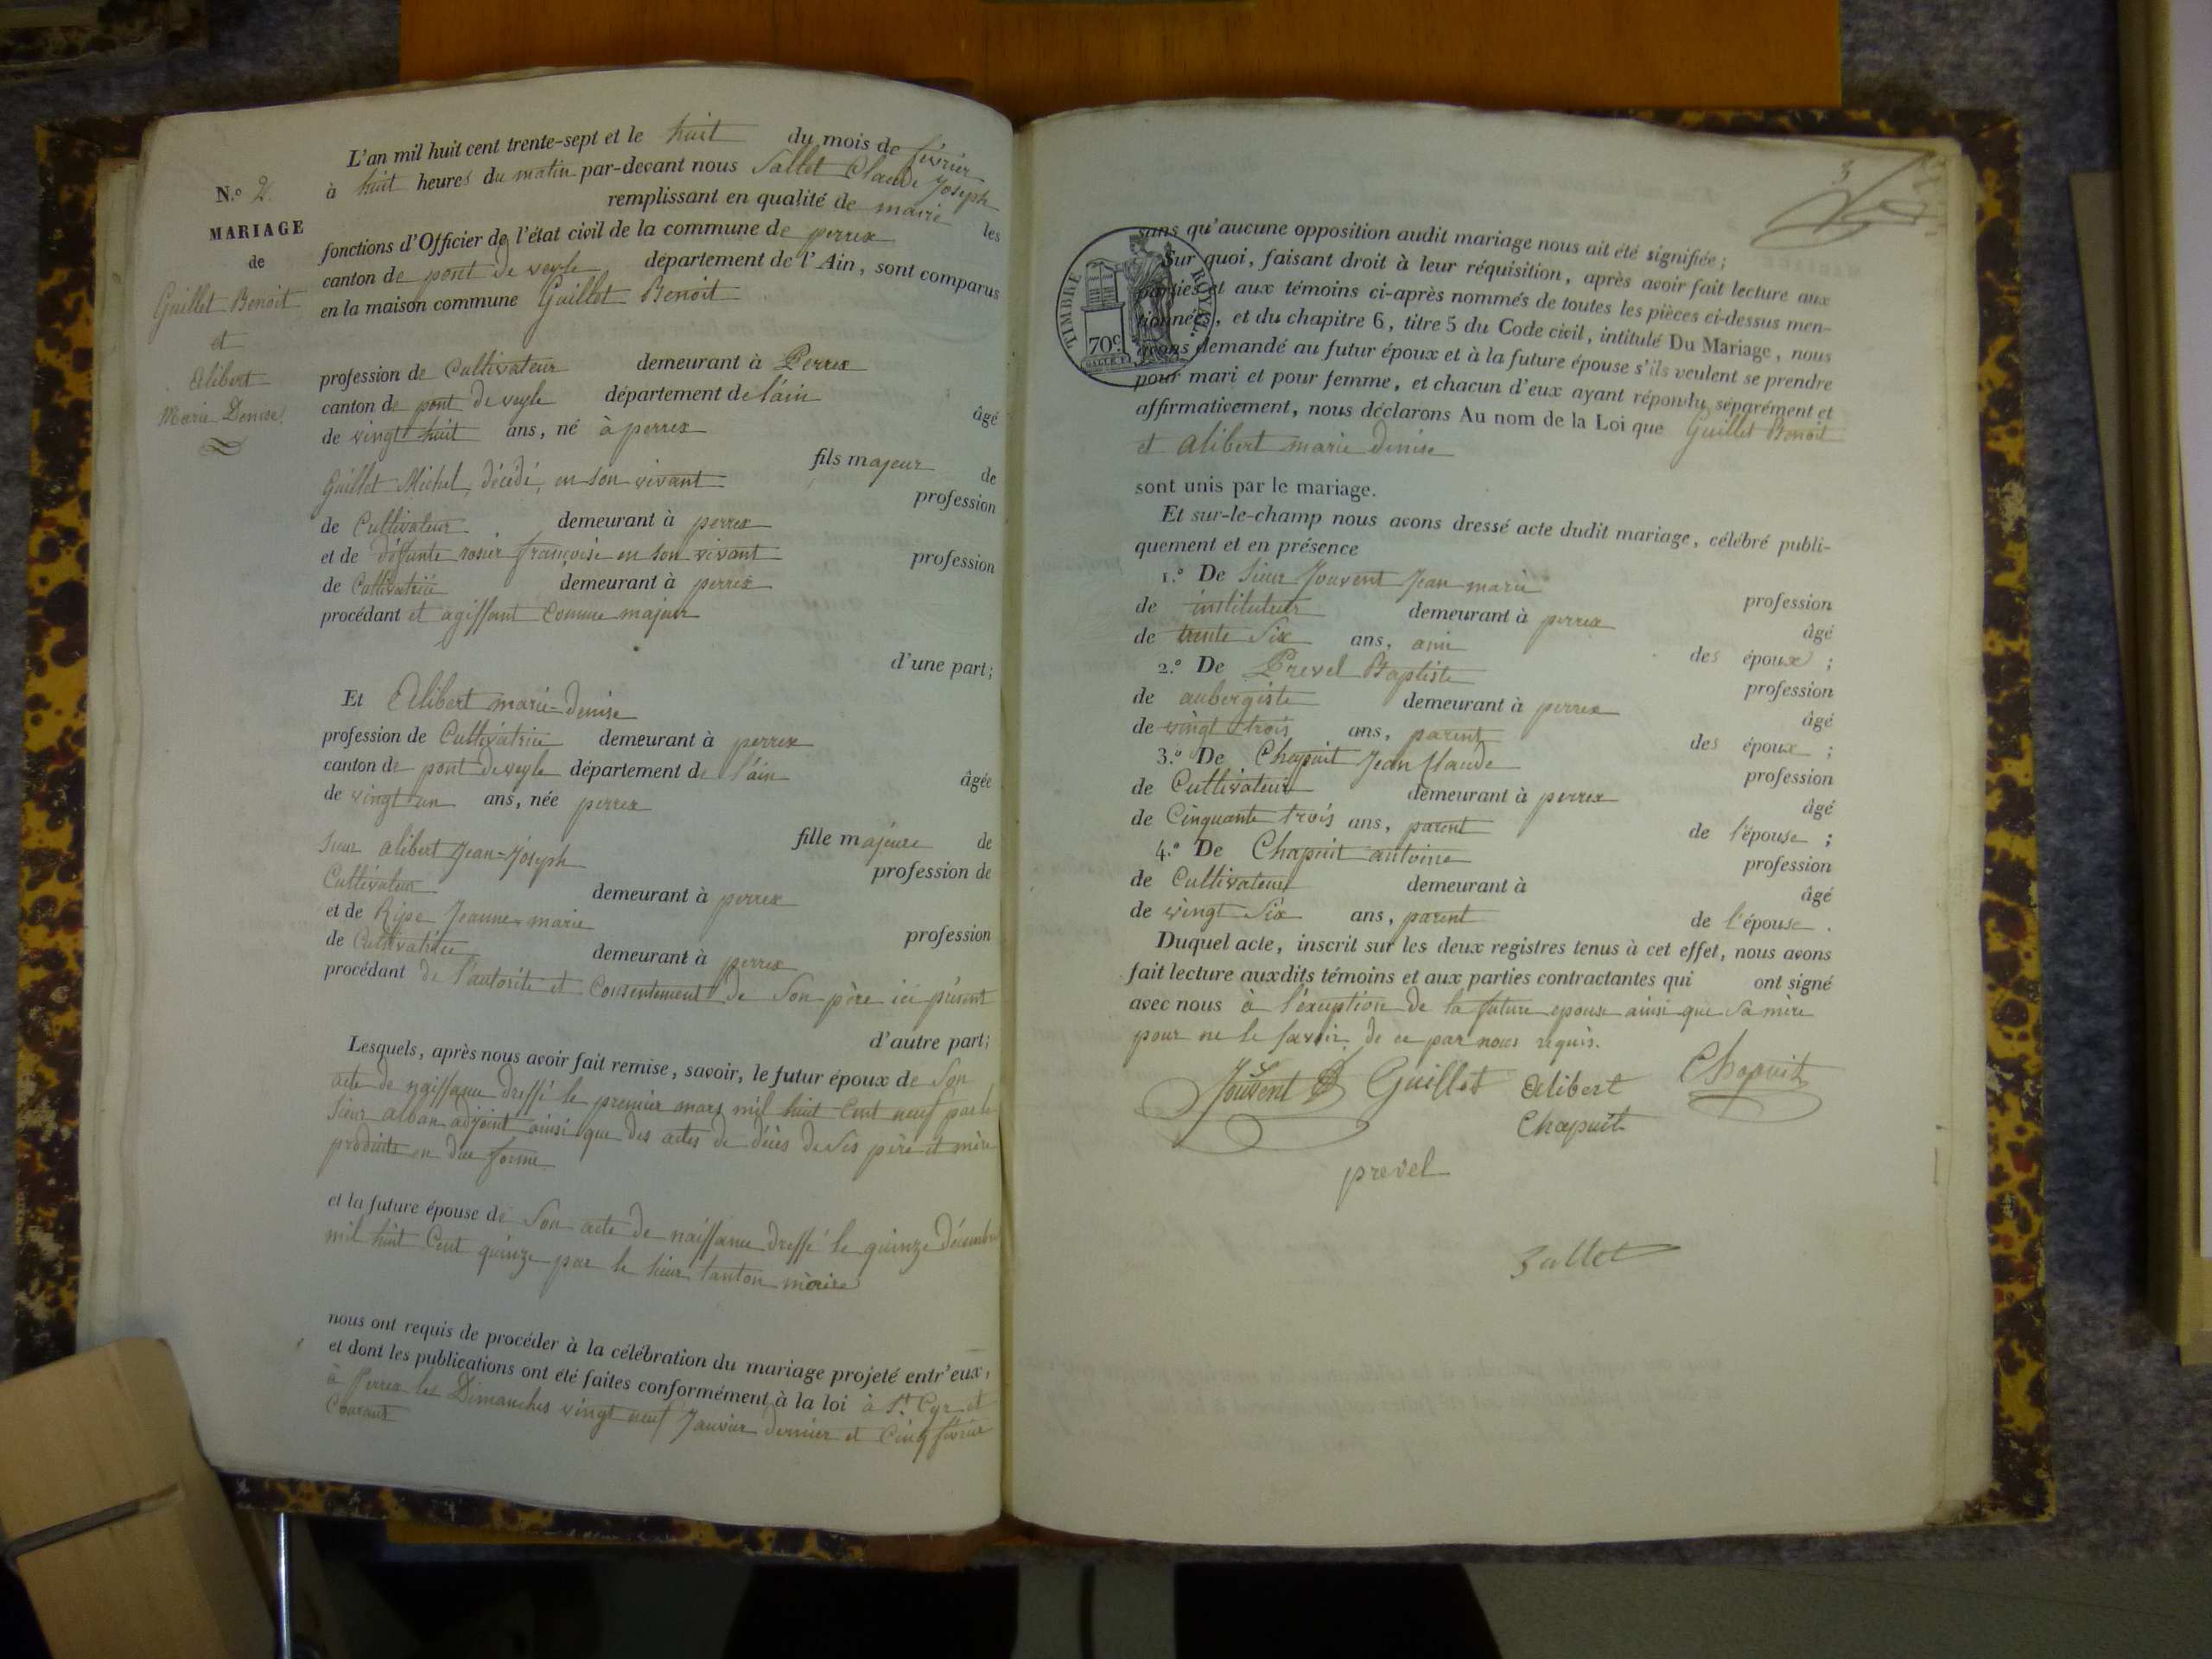 N.º 2.
MARIAGE
de
Guillet Benoit
et
Alibert
Marie Denise
L'an mil huit cent trente-sept et le huit du mois de février
à huit heures du matin par-devant nous Sallet Claude Joseph
remplissant en qualité de maire les
fonctions d'Officier de l'état civil de la commune de perrex
canton de pont de veyle département de l'Ain, sont comparus
en la maison commune Guillet Benoit
profession de Cultivateur demeurant à Perrex
canton de pont de veyle département de l'ain
âgé
de vingt huit ans, né à perrex
fils majeur de
Guillet Michel, décédé, en son vivant profession
de Cultivateur demeurant à perrex
et de défunte rosier françoise en son vivant profession
de Cultivatrice demeurant à perrex
procédant et agissant comme majeur
d'une part;
Et Alibert marie-denise
profession de Cultivatrice demeurant à perrex
canton de pont de veyle département de l'ain
âgée
de vingt un ans, née perrex
fille majeure de
Sieur alibert Jean=Joseph profession de
Cultivateur demeurant à perrex
et de Ripe Jeanne=marie profession
de Cultivatrice demeurant à perrex
procédant de l'autorité et Consentement de Son père ici présent
d'autre part;
Lesquels, après nous avoir fait remise, savoir, le futur époux de Son
acte de naissance dressé le premier mars mil huit Cent neuf par le
Sieur alban adjoint ainsi que des actes de décès de ses père et mère
produits en due forme
et la future épouse de Son acte de naissance dressé le quinze décembre
mil huit Cent quinze par le Sieur tanton maire
nous ont requis de procéder à la célébration du mariage projeté entr'eux,
et dont les publications ont été faites conformément à la loi à St Cyr et
à Perrex les Dimanches vingt neuf Janvier dernier et Cinq février
Courant
3
TIMBRE ROYAL.
70c
sans qu'aucune opposition audit mariage nous ait été signifiée;
Sur quoi, faisant droit à leur réquisition, après avoir fait lecture aux
parties et aux témoins ci-après nommés de toutes les pièces ci-dessus men-
tionnées, et du chapitre 6, titre 5 du Code civil, intitulé Du Mariage, nous
avons demandé au futur époux et à la future épouse s'ils veulent se prendre
pour mari et pour femme, et chacun d'eux ayant répondu séparément et
affirmativement, nous déclarons Au nom de la Loi que Guillet Benoit
et alibert marie denise
sont unis par le mariage.
Et sur-le-champ nous avons dressé acte dudit mariage, célébré publi-
quement et en présence
1.º De Sieur Jouvent Jean marie profession
de instituteur demeurant à perrex âgé
de trente Six ans, ami des époux ;
2.º De Prevel Baptiste profession
de aubergiste demeurant à perrex âgé
de vingt trois ans, parent des époux ;
3.º De Chapuit Jean Claude profession
de Cultivateur demeurant à perrex âgé
de Cinquante trois ans, parent de l'épouse ;
4.º De Chapuit antoine profession
de Cultivateur demeurant à âgé
de vingt Six ans, parent de l'épouse .
Duquel acte, inscrit sur les deux registres tenus à cet effet, nous avons
fait lecture auxdits témoins et aux parties contractantes qui ont signé
avec nous à l'éxception de la future epouse ainsi que Sa mère
pour ne le savoir de ce par nous requis.
Jouvent Guillet Alibert Chapuit
Chapuit
prevel
Sallet